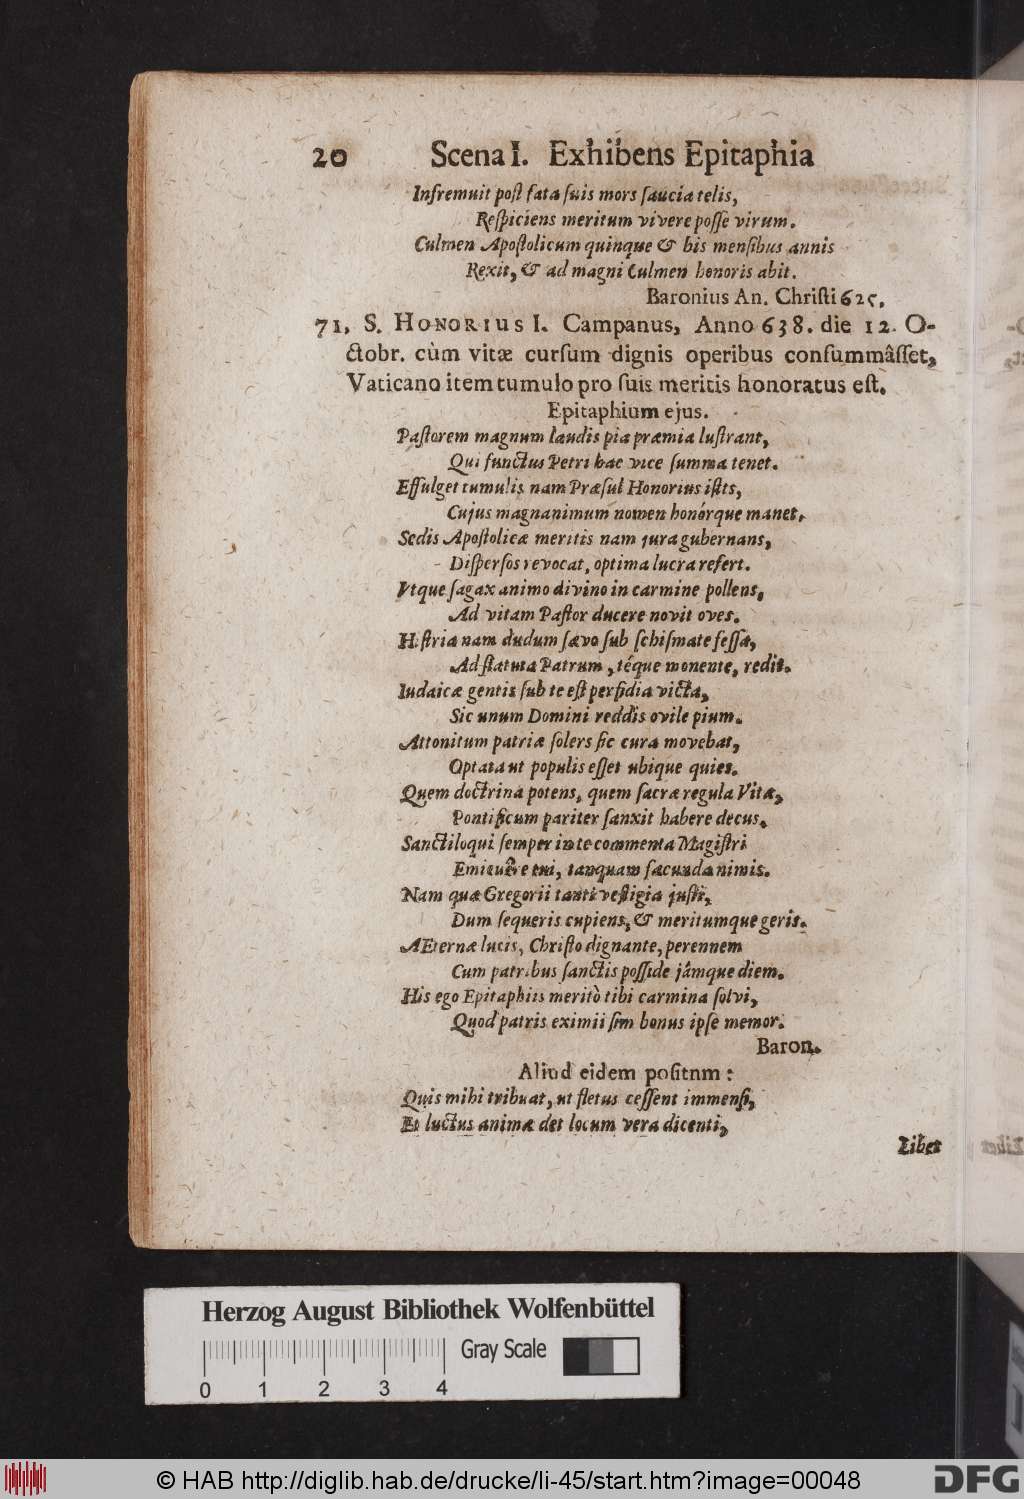 20 Scena I. Exhibens Epitaphia
Infremuit poſt fata ſuis mors ſaucia telis,
Reſpiciens meritum vivere poſſe virum.
Culmen Apoſtolicum quinque & bis menſibus annis
Rexit, & ad magni Culmen honoris abit.
Baronius An. Chriſti 625.
71. S. HONORIUS I. Campanus, Anno 638. die 12. O-
ctobr. cùm vitæ curſum dignis operibus conſummâſſet,
Vaticano item tumulo pro ſuis meritis honoratus eſt.
Epitaphium ejus.
Paſtorem magnum laudis pia præmia luſtrant,
Qui functus Petri hac vice ſumma tenet.
Effulget tumulis nam Præſul Honorius iſtis,
Cujus magnanimum nomen honórque manet.
Sedis Apoſtolicæ meritis nam jura gubernans,
Diſperſos revocat, optima lucra refert.
Vtque ſagax animo divino in carmine pollens,
Ad vitam Paſtor ducere novit oves.
Hiſtria nam dudum ſævo ſub ſchiſmate feſſa,
Ad ſtatuta Patrum, téque monente, redit.
Iudaicæ gentis ſub te eſt perfidia victa,
Sic unum Domini reddis ovile pium.
Attonitum patriæ ſolers ſic cura movebat,
Optata ut populis eſſet ubique quies.
Quem doctrina potens, quem ſacræ regula Vitæ,
Pontificum pariter ſanxit habere decus.
Sanctiloqui ſemper in te commenta Magiſtri
Emicuêre tui, tanquam facunda nimis.
Nam quæ Gregorii tanti veſtigia juſti,
Dum ſequeris cupiens, & meritumque geris.
AEternæ lucis, Chriſto dignante, perennem
Cum patribus ſanctis poſſide jâmque diem.
His ego Epitaphiis meritò tibi carmina ſolvi,
Quod patris eximii ſim bonus ipſe memor.
Baron.
Aliud eidem poſitnm:
Quis mihi tribuat, ut fletus ceſſent immenſi,
Et luctus animæ det locum vera dicenti,
Licet
Herzog August Bibliothek Wolfenbüttel
Gray Scale
0 1 2 3 4
© HAB http://diglib.hab.de/drucke/li-45/start.htm?image=00048
DFG